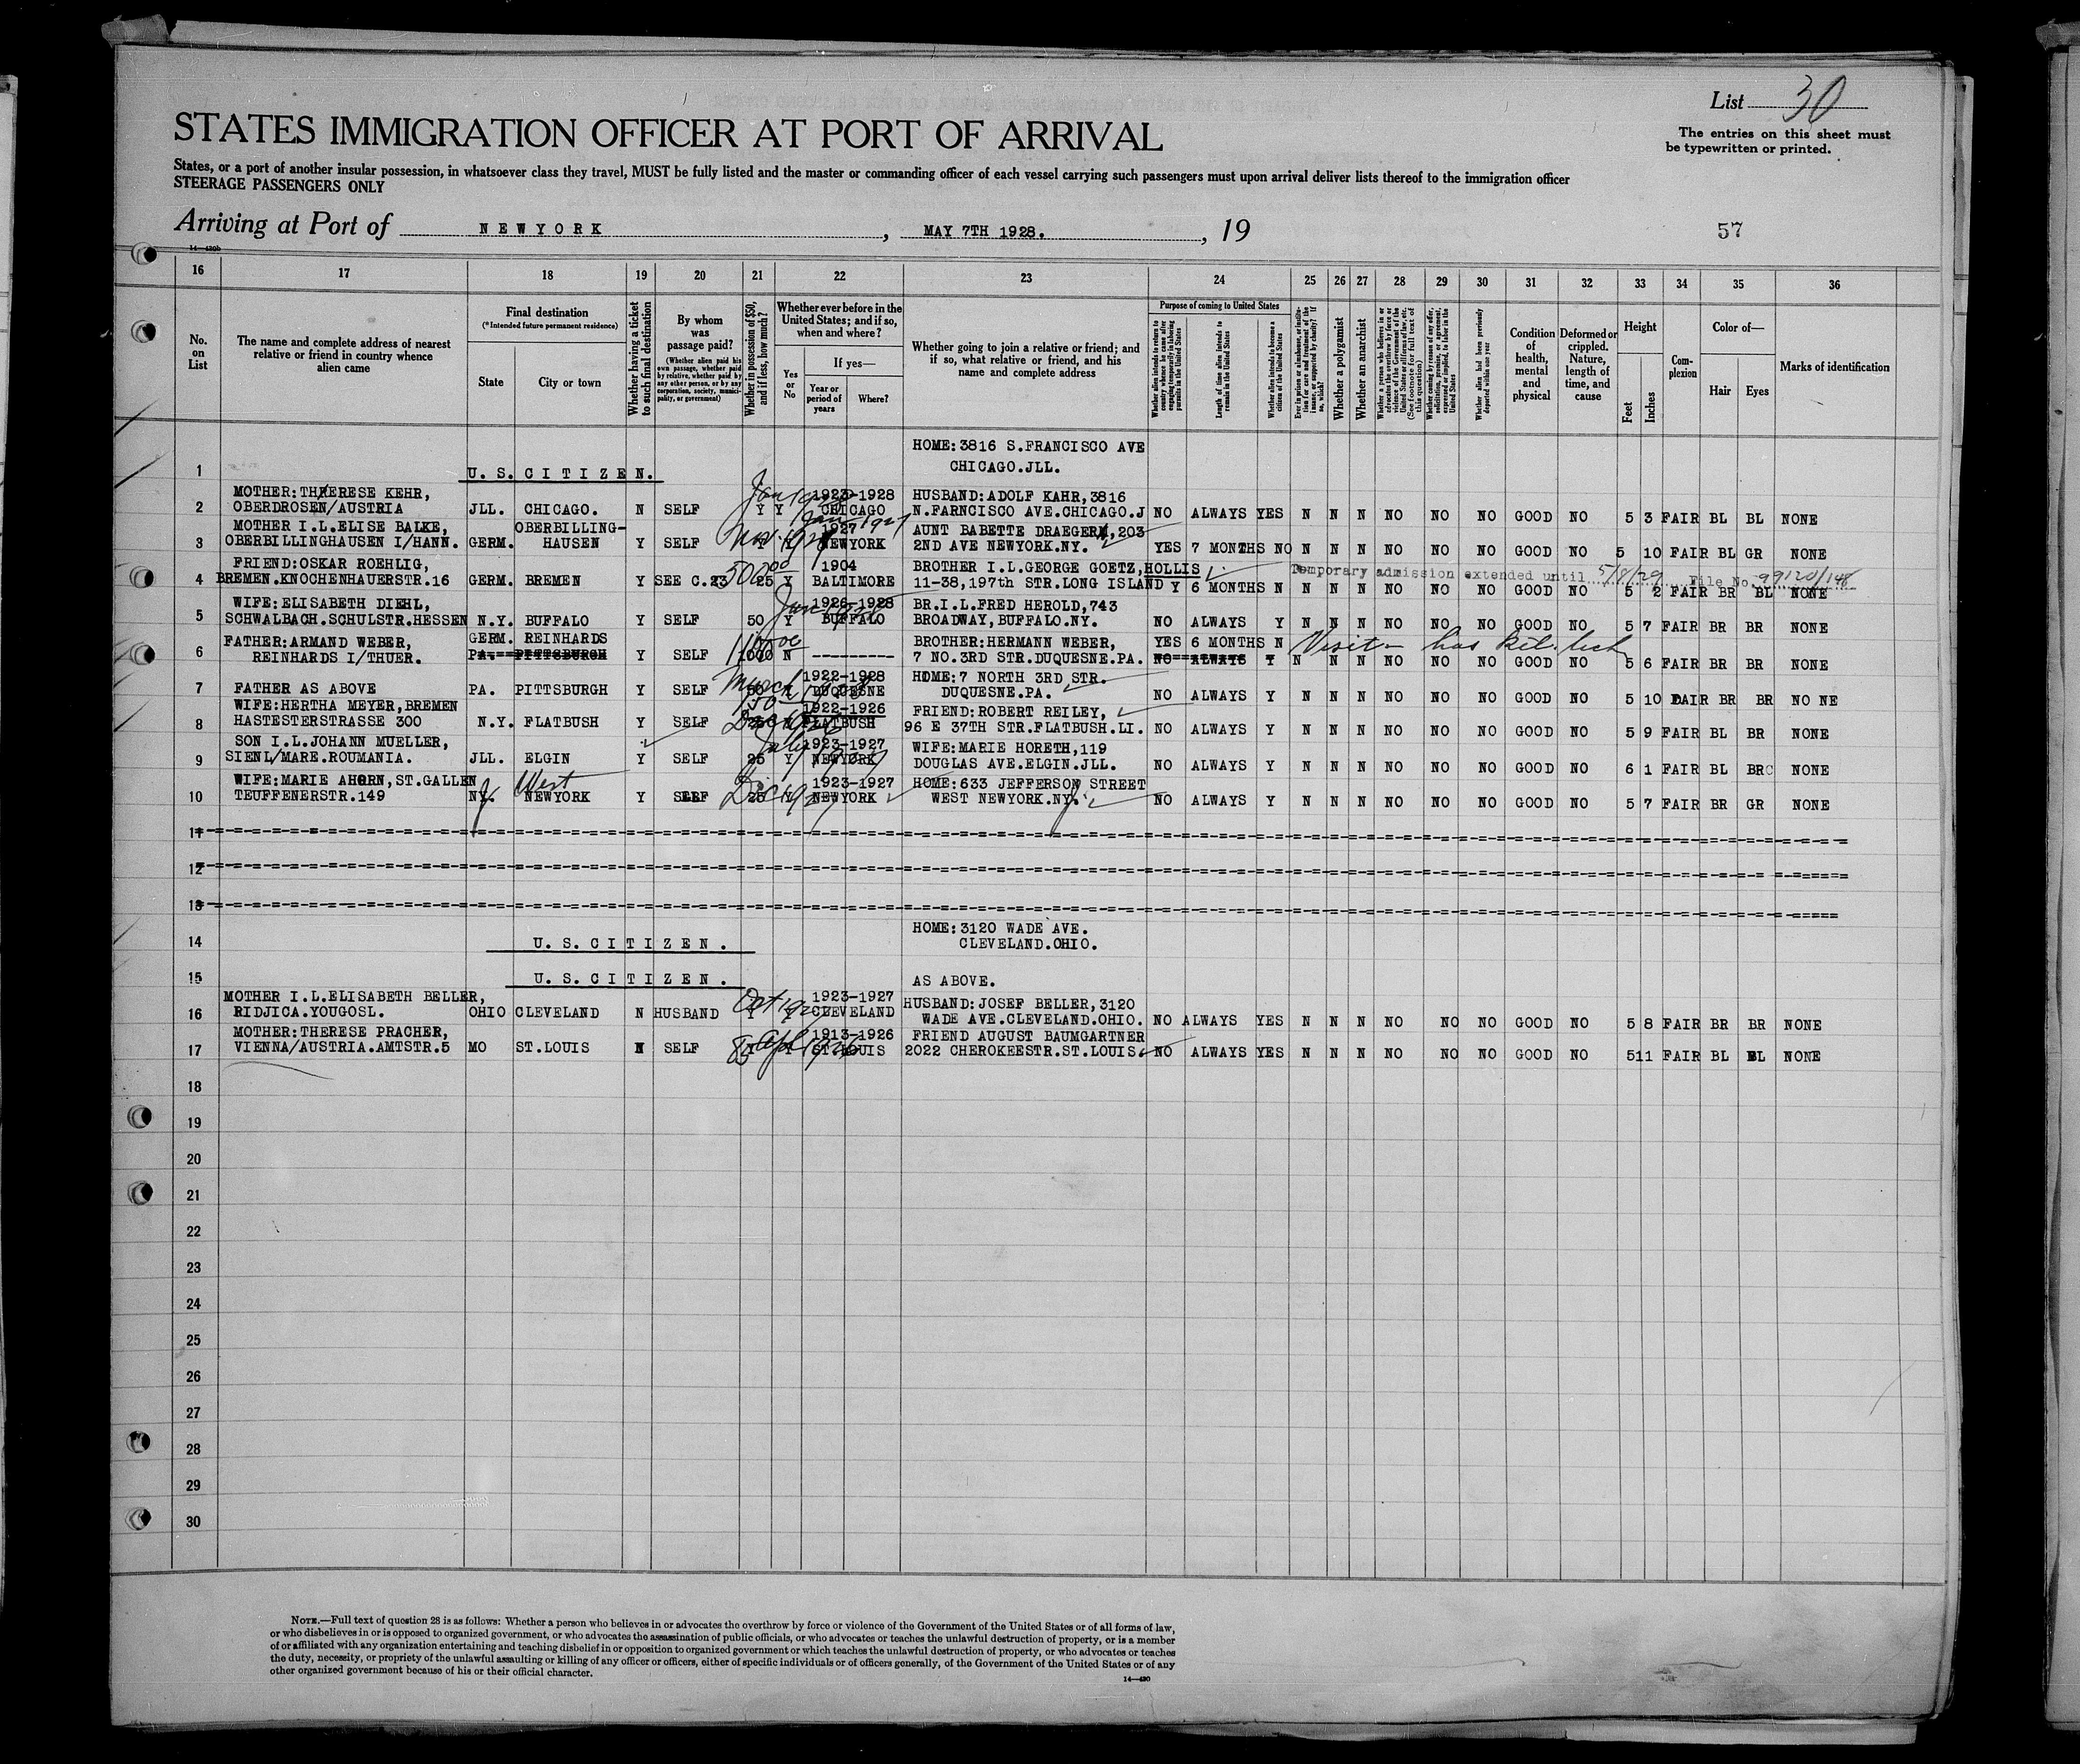 List 30
The entries on this sheet must
be typewritten or printed.
STATES IMMIGRATION OFFICER AT PORT OF ARRIVAL
States, or a port of another insular possession, in whatsoever class they travel, MUST be fully listed and the master or commanding officer of each vessel carrying such passengers must upon arrival deliver lists thereof to the immigration officer
STEERAGE PASSENGERS ONLY
Arriving at Port of NEWYORK, MAY 7TH 1928., 19
57
14-430b
16 17 18 19 20 21 22 23 24 25 26 27 28 29 30 31 32 33 34 35 36
No. on List
The name and complete address of nearest relative or friend in country whence alien came
Final destination
(*Intended future permanent residence)
State City or town
Whether having a ticket to such final destination
By whom was passage paid?
(Whether alien paid his own passage, whether paid by relative, whether paid by any other person, or by any corporation, society, municipality, or government)
Whether in possession of $50, and if less, how much?
Whether ever before in the United States; and if so, when and where?
Yes or No
If yes—
Year or period of years Where?
Whether going to join a relative or friend; and if so, what relative or friend, and his name and complete address
Purpose of coming to United States
Whether alien intends to return to country whence he came after engaging temporarily in laboring pursuits in the United States
Length of time alien intends to remain in the United States
Whether alien intends to become a citizen of the United States
Whether a polygamist
Whether an anarchist
Whether alien had been previously deported within one year
Condition of health, mental and physical
Deformed or crippled. Nature, length of time, and cause
Height
Feet Inches
Complexion
Color of—
Hair Eyes
Marks of identification
HOME:3816 S.FRANCISCO AVE
CHICAGO.JLL.
1 U.S.CITIZEN.
MOTHER:THERESE KEHR, 1923-1928 HUSBAND:ADOLF KAHR,3816
2 OBERDROSEN/AUSTRIA JLL. CHICAGO. N SELF Y Y CHICAGO N.FARNCISCO AVE.CHICAGO.J NO ALWAYS YES N N N NO NO NO GOOD NO 5 3 FAIR BL BL NONE
MOTHER I.L.ELISE BALKE, OBERBILLING- 1927 AUNT BABETTE DRAEGER,203
3 OBERBILLINGHAUSEN I/HANN. GERM. HAUSEN Y SELF Y Y NEWYORK 2ND AVE NEWYORK.NY. YES 7 MONTHS NO N N N NO NO NO GOOD NO 5 10 FAIR BL GR NONE
FRIEND:OSKAR ROEHLIG, 500 00 1904 BROTHER I.L.GEORGE GOETZ,HOLLIS Temporary admission extended until 5/8/29 File No. 99120/148
4 BREMEN.KNOCHENHAUERSTR.16 GERM. BREMEN Y SEE C.23 25 Y BALTIMORE 11-38,197th STR.LONG ISLAND Y 6 MONTHS N N N N NO NO NO GOOD NO 5 2 FAIR BR BL NONE
WIFE:ELISABETH DIEHL, 1926-1928 BR.I.L.FRED HEROLD,743
5 SCHWALBACH.SCHULSTR.HESSEN N.Y. BUFFALO Y SELF 50 Y BUFFALO BROADWAY,BUFFALO.NY. NO ALWAYS Y N N N NO NO NO GOOD NO 5 7 FAIR BR BR NONE
FATHER:ARMAND WEBER, GERM. REINHARDS BROTHER:HERMANN WEBER, YES 6 MONTHS N Visit -
6 REINHARDS I/THUER. PA. PITTSBURGH Y SELF 1000 N ---------- 7 NO.3RD STR.DUQUESNE.PA. NO ALWAYS Y N N N NO NO NO GOOD NO 5 6 FAIR BR BR NONE
1922-1928 HOME:7 NORTH 3RD STR.
7 FATHER AS ABOVE PA. PITTSBURGH Y SELF Y DUQUESNE DUQUESNE.PA. NO ALWAYS Y N N N NO NO NO GOOD NO 5 10 DAIR BR BR NO NE
WIFE:HERTHA MEYER,BREMEN 1922-1926 FRIEND:ROBERT REILEY,
8 HASTESTERSTRASSE 300 N.Y. FLATBUSH Y SELF Y FLATBUSH 96 E 37TH STR.FLATBUSH.LI. NO ALWAYS Y N N N NO NO NO GOOD NO 5 9 FAIR BL BR NONE
SON I.L.JOHANN MUELLER, July 1923-1927 WIFE:MARIE HORETH,119
9 SIENL/MARE.ROUMANIA. JLL. ELGIN Y SELF 25 Y NEWYORK DOUGLAS AVE.ELGIN.JLL. NO ALWAYS Y N N N NO NO NO GOOD NO 6 1 FAIR BL BRC NONE
WIFE:MARIE AHORN,ST.GALLEN West 1923-1927 HOME:633 JEFFERSON STREET
10 TEUFFENERSTR.149 NY. NEWYORK Y SELF 25 Y NEWYORK WEST NEWYORK.NY. NO ALWAYS Y N N N NO NO NO GOOD NO 5 7 FAIR BR GR NONE
11
12
13
HOME:3120 WADE AVE.
14 U.S.CITIZEN. CLEVELAND.OHIO.
15 U.S.CITIZEN. AS ABOVE.
MOTHER I.L.ELISABETH BELLER, 1923-1927 HUSBAND:JOSEF BELLER,3120
16 RIDJICA.YOUGOSL. OHIO CLEVELAND N HUSBAND Y Y CLEVELAND WADE AVE.CLEVELAND.OHIO. NO ALWAYS YES N N N NO NO NO GOOD NO 5 8 FAIR BR BR NONE
MOTHER:THERESE PRACHER, 1913-1926 FRIEND AUGUST BAUMGARTNER
17 VIENNA/AUSTRIA.AMTSTR.5 MO ST.LOUIS N SELF Y Y ST.LOUIS 2022 CHEROKEESTR.ST.LOUIS. NO ALWAYS YES N N N NO NO NO GOOD NO 511 FAIR BL BL NONE
18
19
20
21
22
23
24
25
26
27
28
29
30
NOTE.—Full text of question 28 is as follows: Whether a person who believes in or advocates the overthrow by force or violence of the Government of the United States or of all forms of law,
or who disbelieves in or is opposed to organized government, or who advocates the assassination of public officials, or who advocates or teaches the unlawful destruction of property, or is a member
of or affiliated with any organization entertaining and teaching disbelief in or opposition to organized government or which teaches the unlawful destruction of property, or who advocates or teaches
the duty, necessity, or propriety of the unlawful assaulting or killing of any officer or officers, either of specific individuals or of officers generally, of the Government of the United States or of any
other organized government because of his or their official character.
14-430